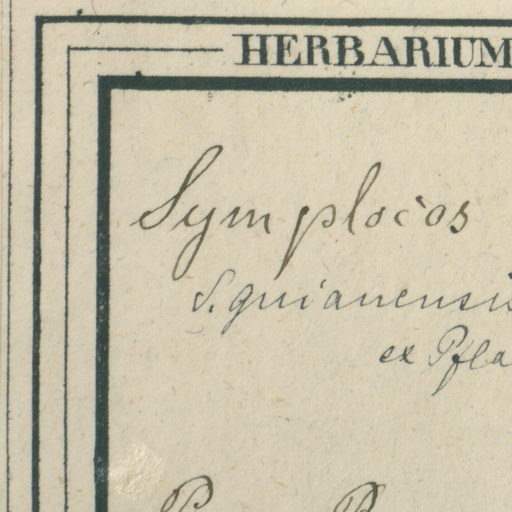 HERBARIUM
Symplocos
S. guianensi
ex Pfla